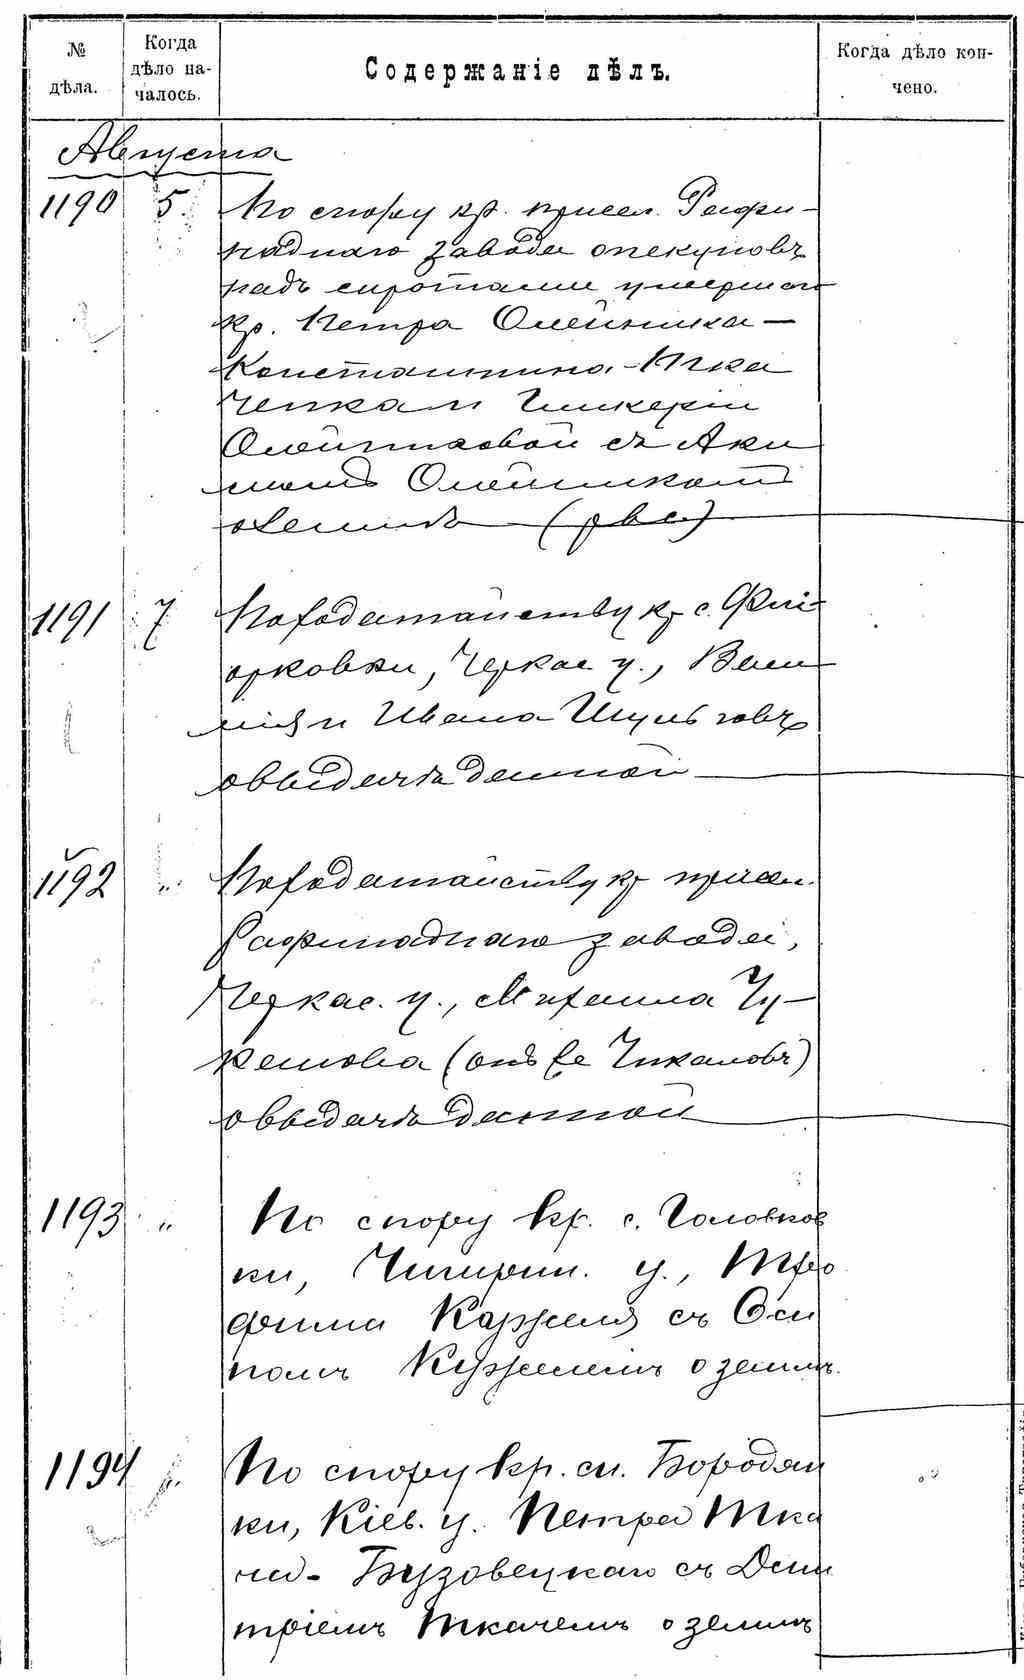 № дѣла.
Когда дѣло началось.
Содержаніе дѣлъ.
Когда дѣло кончено.
Августа
1190 5. По спору кр. присел. Рафи-
наднаго завода опекуновъ
надъ сиротами умершаго
кр. Петра Олейника -
Константина Тка
ченка и Гликеріи
Олейниковой съ Аки
момъ Олейником
о землѣ
1191 7 По ходатайству кр. с.
Черкас. у., Васи
лія и Ивана Шульговъ
о выдачѣ данной
1192 " По ходатайству кр. присел.
Рафинаднаго завода,
Черкас. у., Михаила Чу-
калова (онъ же Чикаловъ)
о выдачѣ данной
1193 " По спору кр. с. Головков
ки, Чигирин. у., Тро
фима Каржеля съ Оси
помъ Куржелемъ о землѣ.
1194 ". По спору кр. см. Бородян
ки, Кіев. у. Петра Тка
ча - Бузовецкаго съ Дми
тріемъ Ткачемъ о землѣ